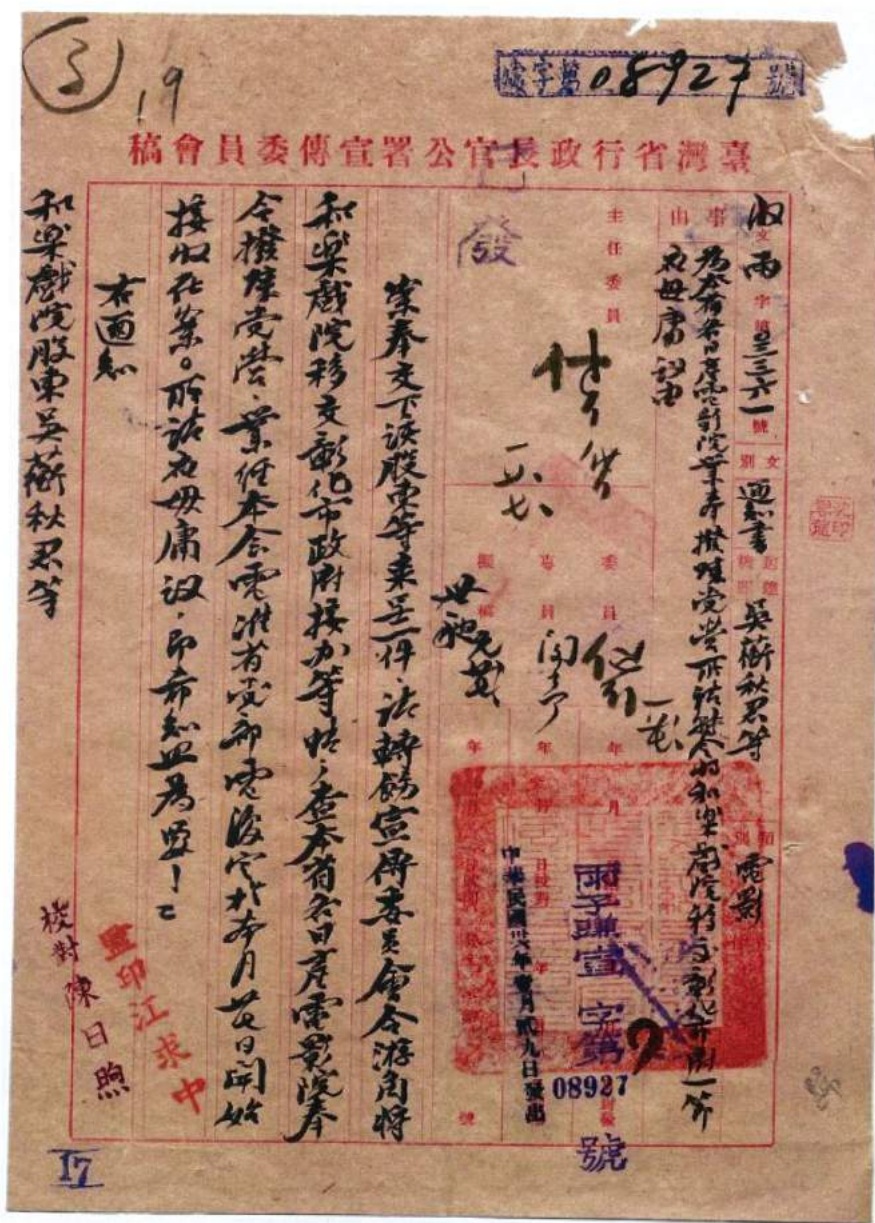 19
處字第08927號
臺灣省行政長官公署宣傳委員會稿
收文 字第三三六一號
文別 通知書
吳蘅秋君等
類別 電影
事由
為本省各日產電影院業奉撥歸党營所請
將和樂戲院移交彰化市
一節
應毋庸議由
主任委員
委員
專員
擬稿
已發
中華民國卅六年 月貳九日發出
宣字第08927號
案奉交下該股東等来呈一件,請轉飭宣傳委員會令
將
和樂戲院移交彰化市政府接办等情,查本省各日產電影院奉
令撥歸党營,業經本会電准省党部電復定於本月廿 日開始
接收在案。所請應毋庸議,即希知照為要!
右通知
和樂戲院股東吳蘅秋君等
監印江求中
校對陳日煦
17